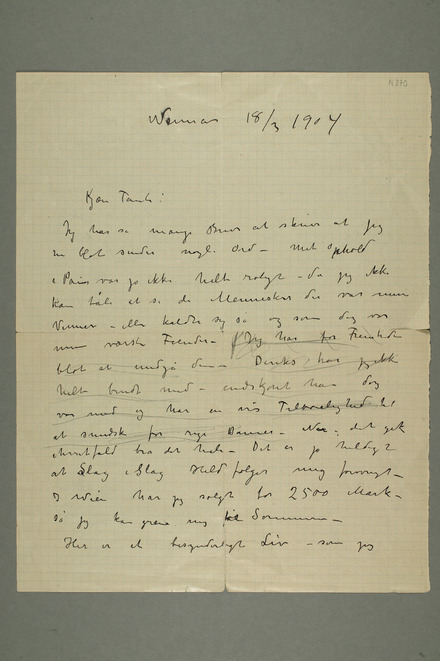 N 870
Weimar 18/3 1904
Kjære Tante!
Jeg har så mange Breve at skrive at jeg
blot sender nogle Ord – mit Ophold
i Paris var jo ikke helt roligt – da jeg ikke
kan tåle at se de Mennesker der var mine
Venner – eller kalder sig så og som dog var
mine værste Fiender – Jeg har for Fremtiden
blot at undgå dem – har jeg ikke
helt brudt med – endskjønt han dog
var med og har en vis Tilbøielighed til
at for rige Damer – Nu – det gik
ialtfald bra det hele – Det er jo heldigt
at Slag i Slag Held følger mig forøvrigt –
I Wien har jeg solgt for 2500 Mark –
Så jeg kan greie mig til Sommeren –
Her er et besynderligt Liv – som jeg